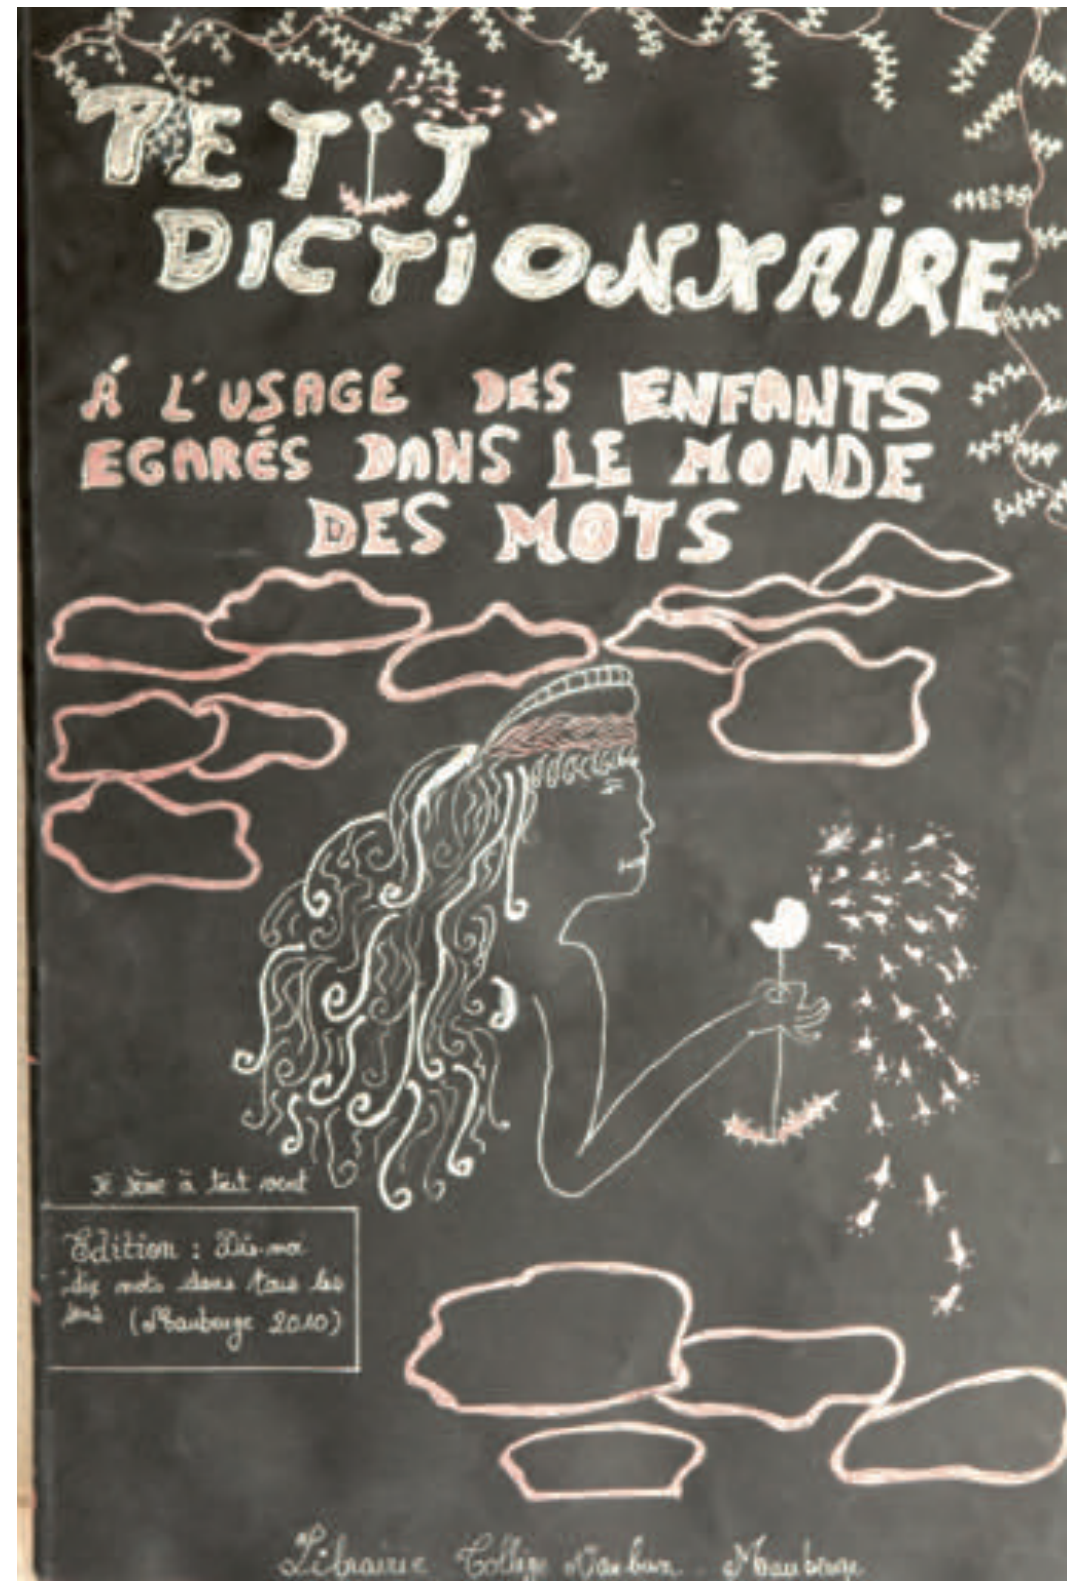 PETIT
DICTIONNAIRE
Á L'USAGE DES ENFANTS
EGARÉS DANS LE MONDE
DES MOTS
Je sème à tout vent
Edition : Dis-moi
dix mots dans tous les
sens (Maubeuge 2010)
Librairie Collège Vauban Maubeuge